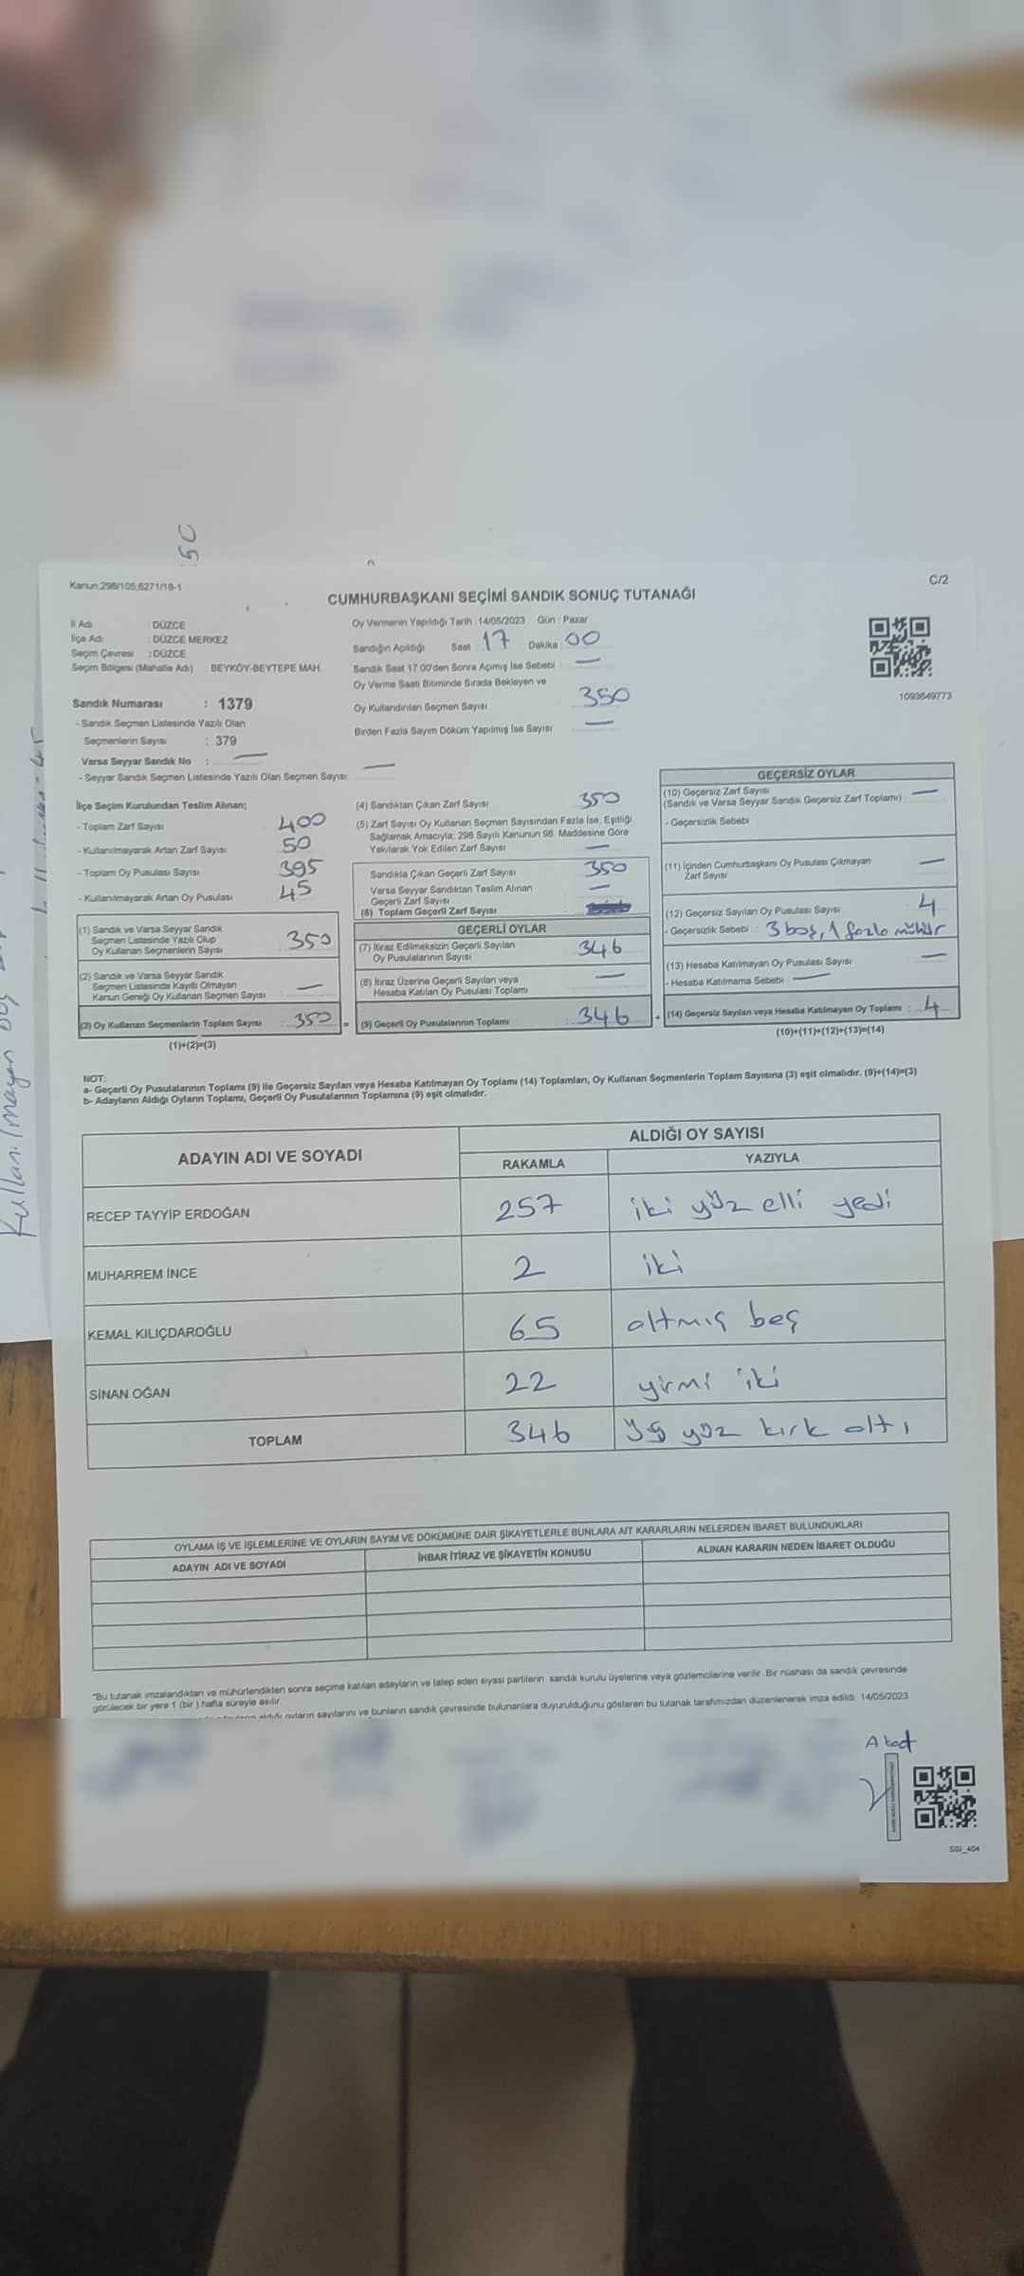 Kanun:298/105,6271/18-1
C/2
CUMHURBAŞKANI SEÇİMİ SANDIK SONUÇ TUTANAĞI
İl Adı : DÜZCE
İlçe Adı : DÜZCE MERKEZ
Seçim Çevresi : DÜZCE
Seçim Bölgesi (Mahalle Adı) BEYKÖY-BEYTEPE MAH.
Sandık Numarası : 1379
- Sandık Seçmen Listesinde Yazılı Olan
Seçmenlerin Sayısı : 379
Varsa Seyyar Sandık No : —
- Seyyar Sandık Seçmen Listesinde Yazılı Olan Seçmen Sayısı —
Oy Vermenin Yapıldığı Tarih : 14/05/2023 Gün : Pazar
Sandığın Açıldığı Saat 17 Dakika : 00
Sandık Saat 17.00'den Sonra Açımış İse Sebebi —
Oy Verme Saati Bitiminde Sırada Bekleyen ve
Oy Kullandırılan Seçmen Sayısı 350
Birden Fazla Sayım Döküm Yapılmış İse Sayısı —
1093649773
İlçe Seçim Kurulundan Teslim Alınan;
- Toplam Zarf Sayısı 400
- Kullanılmayarak Artan Zarf Sayısı 50
- Toplam Oy Pusulası Sayısı 395
- Kullanılmayarak Artan Oy Pusulası 45
(1) Sandık ve Varsa Seyyar Sandık
Seçmen Listesinde Yazılı Olup
Oy Kullanan Seçmenlerin Sayısı 350
(2) Sandık ve Varsa Seyyar Sandık
Seçmen Listesinde Kayıtlı Olmayan
Kanun Gereği Oy Kullanan Seçmen Sayısı —
(3) Oy Kullanan Seçmenlerin Toplam Sayısı : 350
(1)+(2)=(3)
(4) Sandıktan Çıkan Zarf Sayısı 350
(5) Zarf Sayısı Oy Kullanan Seçmen Sayısından Fazla İse, Eşitliği
Sağlamak Amacıyla; 298 Sayılı Kanunun 98. Maddesine Göre
Yakılarak Yok Edilen Zarf Sayısı —
Sandıkta Çıkan Geçerli Zarf Sayısı 350
Varsa Seyyar Sandıktan Teslim Alınan
Geçerli Zarf Sayısı —
(6) Toplam Geçerli Zarf Sayısı
GEÇERLİ OYLAR
(7) İtiraz Edilmeksizin Geçerli Sayılan
Oy Pusulalarının Sayısı 346
(8) İtiraz Üzerine Geçerli Sayılan veya
Hesaba Katılan Oy Pusulası Toplamı —
= (9) Geçerli Oy Pusulalarının Toplamı : 346
GEÇERSİZ OYLAR
(10) Geçersiz Zarf Sayısı
(Sandık ve Varsa Seyyar Sandık Geçersiz Zarf Toplamı) —
- Geçersizlik Sebebi
(11) İçinden Cumhurbaşkanı Oy Pusulası Çıkmayan
Zarf Sayısı —
(12) Geçersiz Sayılan Oy Pusulası Sayısı 4
- Geçersizlik Sebebi : 3 boş, 1 fazla mühür
(13) Hesaba Katılmayan Oy Pusulası Sayısı —
- Hesaba Katılmama Sebebi : —
+ (14) Geçersiz Sayılan veya Hesaba Katılmayan Oy Toplamı : 4
(10)+(11)+(12)+(13)=(14)
NOT:
a- Geçerli Oy Pusulalarının Toplamı (9) ile Geçersiz Sayılan veya Hesaba Katılmayan Oy Toplamı (14) Toplamları, Oy Kullanan Seçmenlerin Toplam Sayısına (3) eşit olmalıdır. (9)+(14)=(3)
b- Adayların Aldığı Oyların Toplamı, Geçerli Oy Pusulalarının Toplamına (9) eşit olmalıdır.
ADAYIN ADI VE SOYADI
ALDIĞI OY SAYISI
RAKAMLA YAZIYLA
RECEP TAYYİP ERDOĞAN 257 iki yüz elli yedi
MUHARREM İNCE 2 iki
KEMAL KILIÇDAROĞLU 65 altmış beş
SİNAN OĞAN 22 yirmi iki
TOPLAM 346 üç yüz kırk altı
OYLAMA İŞ VE İŞLEMLERİNE VE OYLARIN SAYIM VE DÖKÜMÜNE DAİR ŞİKAYETLERLE BUNLARA AİT KARARLARIN NELERDEN İBARET BULUNDUKLARI
ADAYIN ADI VE SOYADI İHBAR İTİRAZ VE ŞİKAYETİN KONUSU ALINAN KARARIN NEDEN İBARET OLDUĞU
"Bu tutanak imzalandıktan ve mühürlendikten sonra seçime katılan adayların ve talep eden siyasi partilerin sandık kurulu üyelerine veya gözlemcilerine verilir. Bir nüshası da sandık çevresinde
görülecek bir yere 1 (bir) hafta süreyle asılır.
aldığı oyların sayılarını ve bunların sandık çevresinde bulunanlara duyurulduğunu gösteren bu tutanak tarafımızdan düzenlenerek imza edildi. 14/05/2023
A kat
Kullanılmayan
50